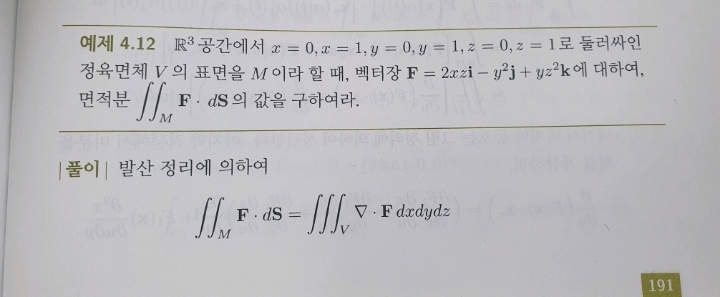 예제 4.12 ℝ³ 공간에서 x = 0, x = 1, y = 0, y = 1, z = 0, z = 1로 둘러싸인
정육면체 V의 표면을 M이라 할 때, 벡터장 F = 2xzi − y²j + yz²k에 대하여,
면적분 ∬_M F · dS의 값을 구하여라.
|풀이| 발산 정리에 의하여
∬_M F · dS = ∭_V ∇ · F dxdydz
191